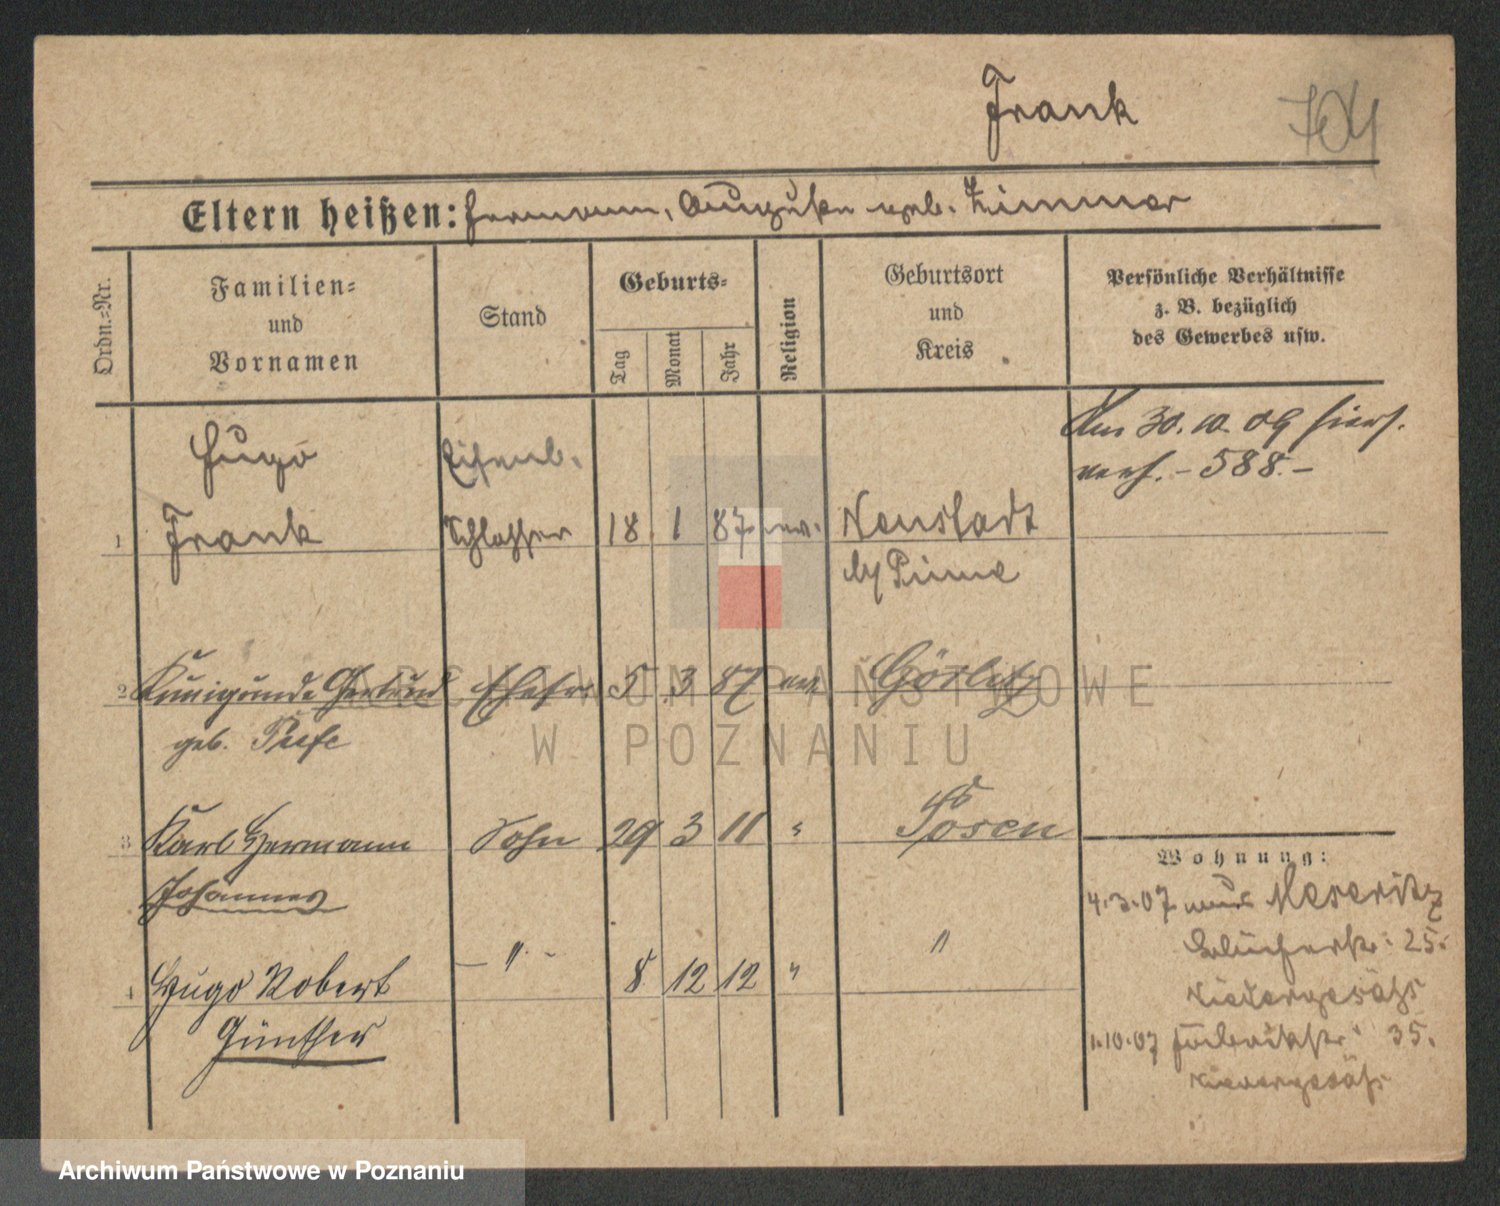 Frank
704
Eltern heißen: Hermann, Auguste geb. Zimmer
Ordn.-Nr.
Familien-
und
Vornamen
Stand
Geburts-
Tag
Monat
Jahr
Religion
Geburtsort
und
Kreis
Persönliche Verhältnisse
z. B. bezüglich
des Gewerbes usw.
Am 30.10.09 hiers.
verh. - 588.-
Hugo Eisenb.
1 Frank Schlosser 18. 1 87. ev. Neustadt
b/ Pinne
2 Kunigunde Gertrud Ehefr. 5 3 87 ev. Görlitz
geb.
3 Karl Hermann Sohn 29 3 11 " Posen
Johannes
4 Hugo Robert - " - 8 12 12 " "
Günther
Wohnung:
4.3.07 aus Meseritz
Blücherstr. 25.
1.10.07 Fabrikstr. 35.
ARCHIWUM PAŃSTWOWE
W POZNANIU
Archiwum Państwowe w Poznaniu